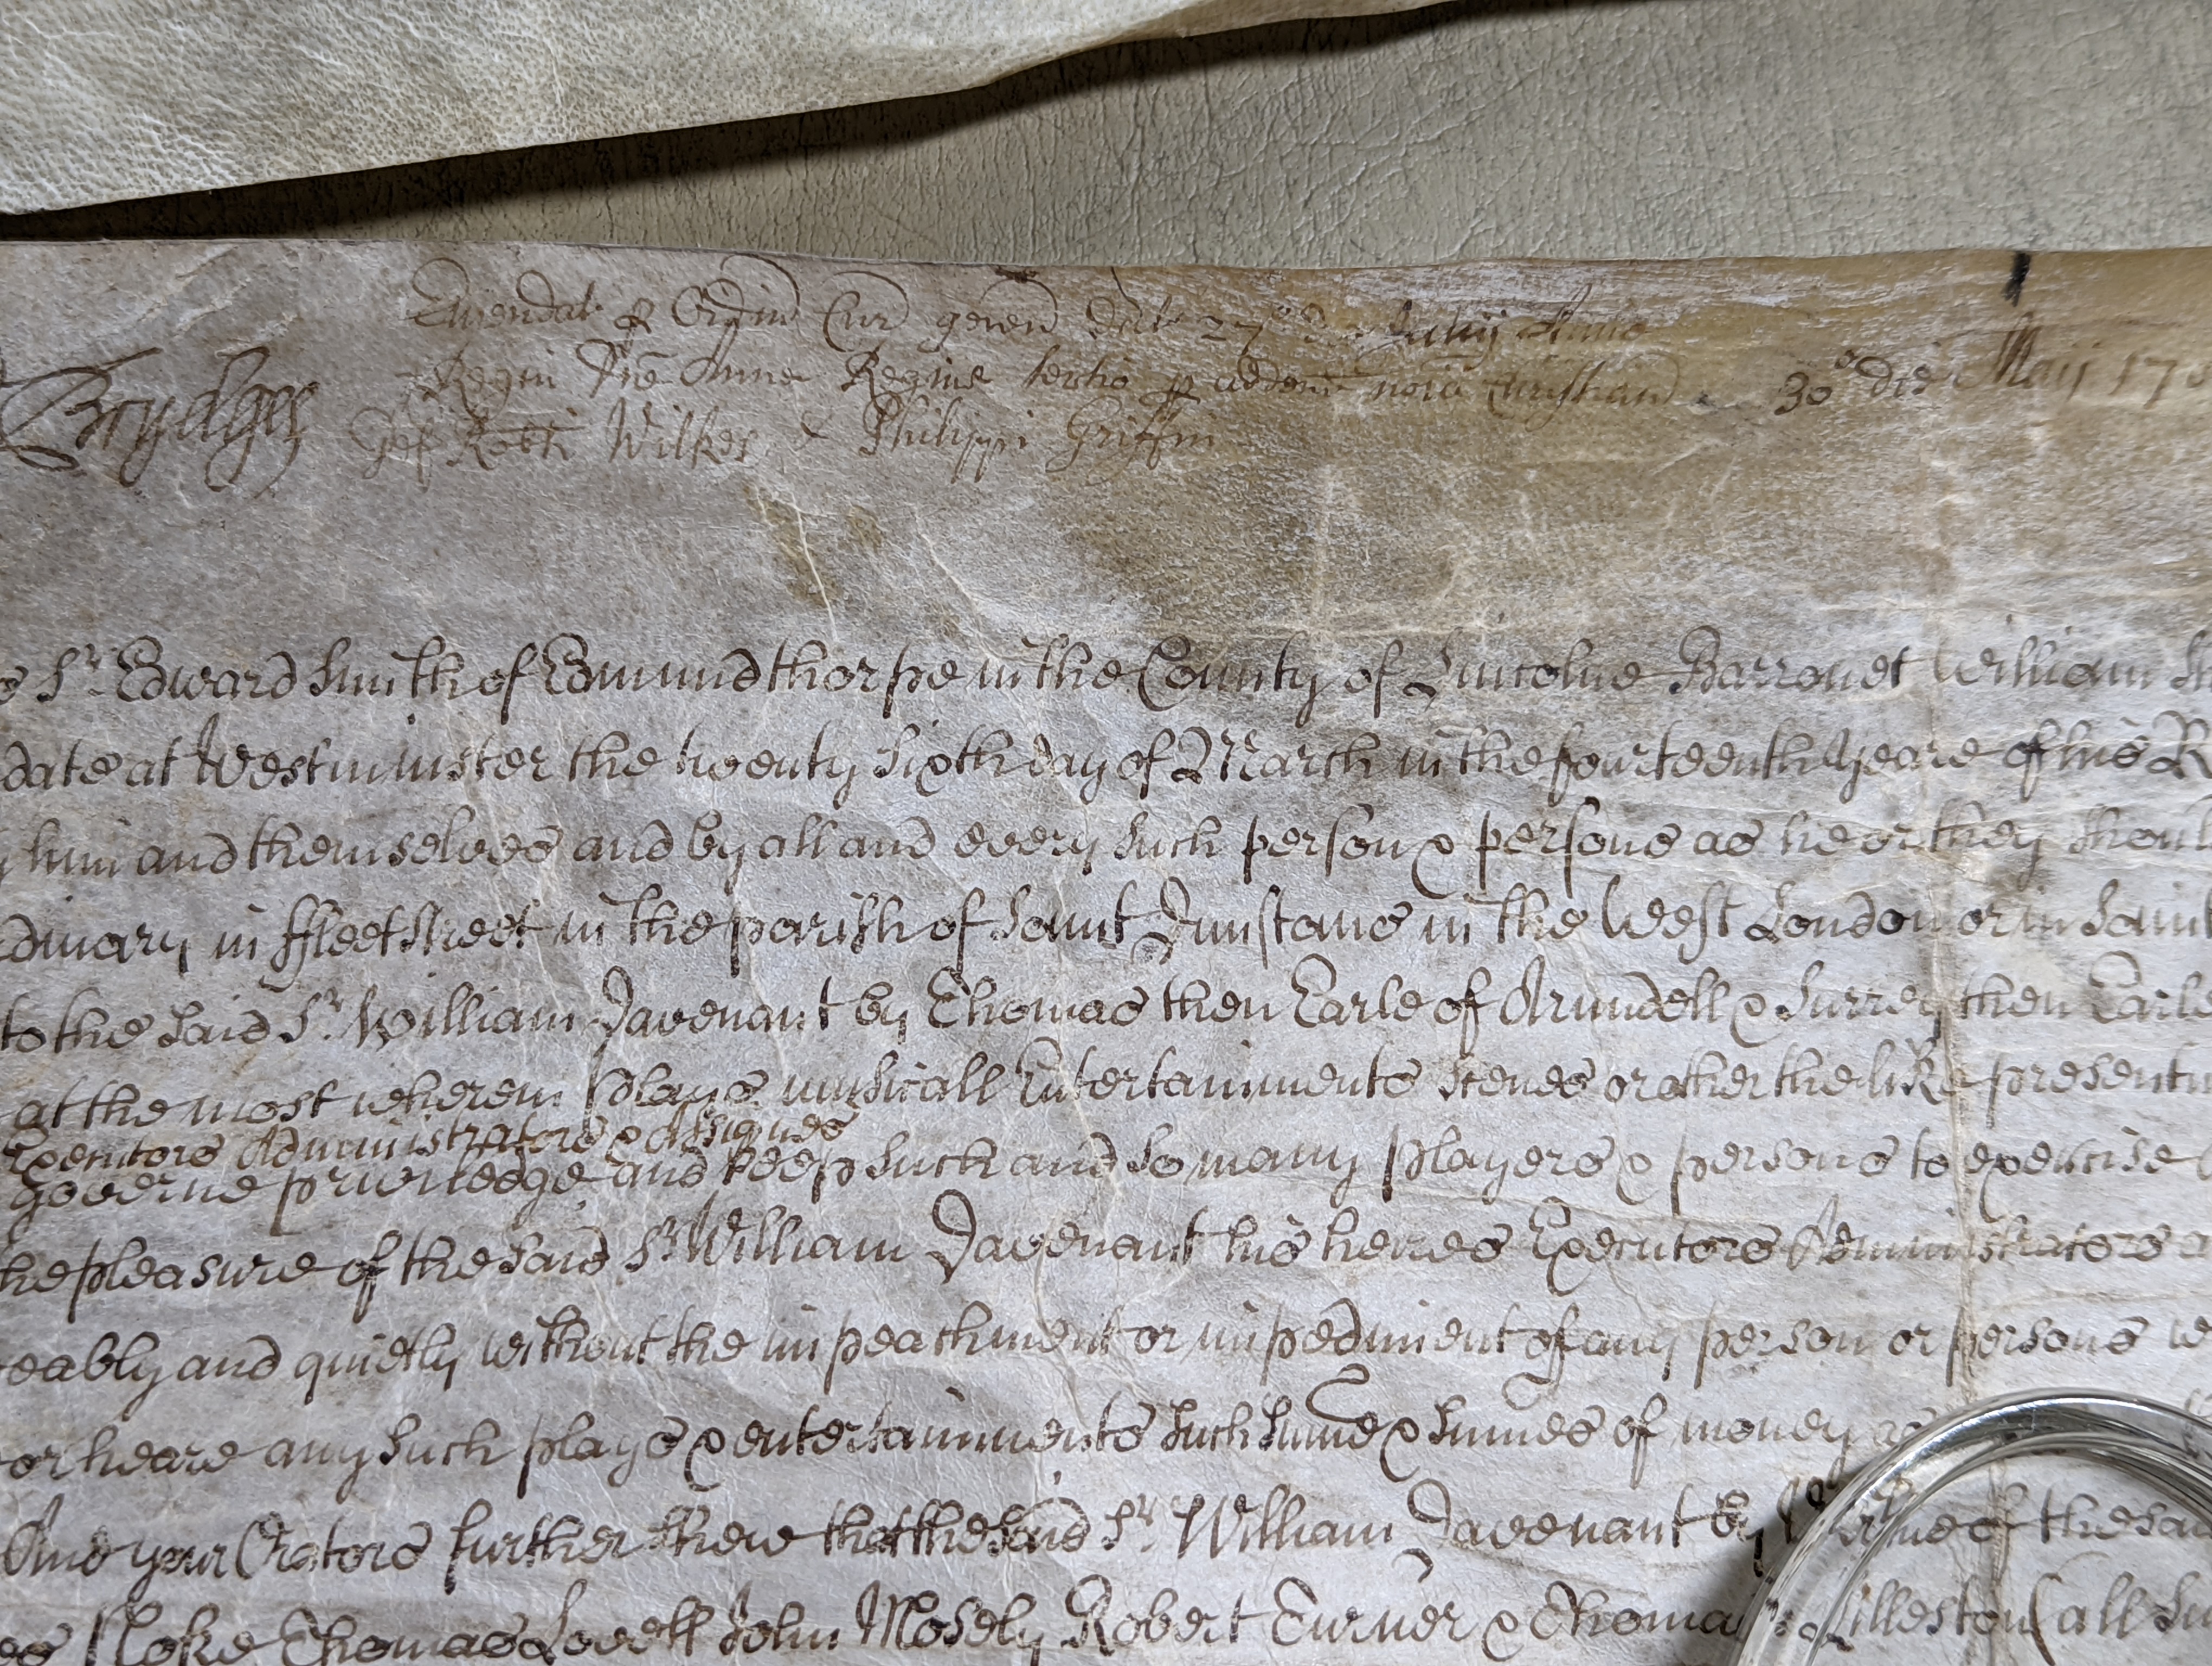 Emendat p Ordin Cur geren dat 27º die Julij Anno
Regin Dne Anne Regine tertio p addend noia Christian
30º die Maij 170
Brydges
Josephi Wilkes & Philippi Griffin
Sr. Edward Smith of Edmundthorpe in the County of Lincolne Barronet William
date at Westminster the twenty Sixth day of March in the fourteenth yeare of his R
him and themselves and by all and every such person & persons as he or they shoul
dinary in ffleetstreet in the parish of Saint Dunstans in the West London or in Saint
to the said Sr. William Davenant by Thomas then Earle of Arundell & Surrey then Earle
at the most wherein plays musicall Entertainments scenes or other the like presentm
Executors Administrators & Assignes
governe priviledge and keep such and so many players & persons to exercise
the pleasure of the said Sr William Davenant his heires Executors Administrators a
eably and quietly without the impeachment or impediment of any person or persons w
or heare any such plays & entertainments such sume & sumes of money as
And your Orators further shew that the said Sr. William Davenant by virtue of the said
es Noke Thomas Lovell John Mosely Robert Turner & Thomas Lilleston (all